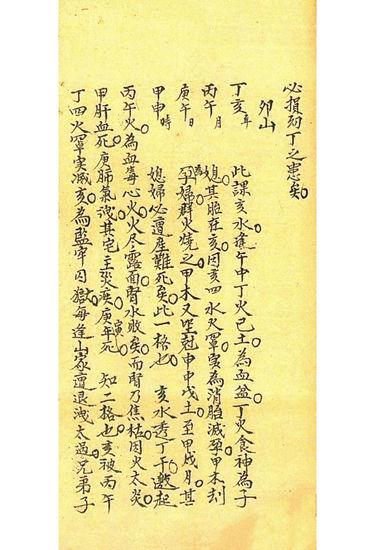 必損刑丁之患矣
卯山
丁亥年
丙午月
庚午日
甲申時
此課亥水逢午中丁火己土為血盆丁火食神為子
媳其胎在亥因亥四水火罩实為消胎滅孕甲木刦
孕婦群火燒之甲木又坐尅申申戊土至甲戌月其
媳婦必遭産難死矣此一格也 亥水透丁干邀起
丙午火為血毒心火火尽露面腎水敗矣而腎乃焦枯因火太炎
甲肝血死庚肺氣洩其宅主炎疾庚寅年死 知二格也亥被丙午
丁四火罩实滅亥為監牢囚獄每逢山家遭退洩太過兄弟子